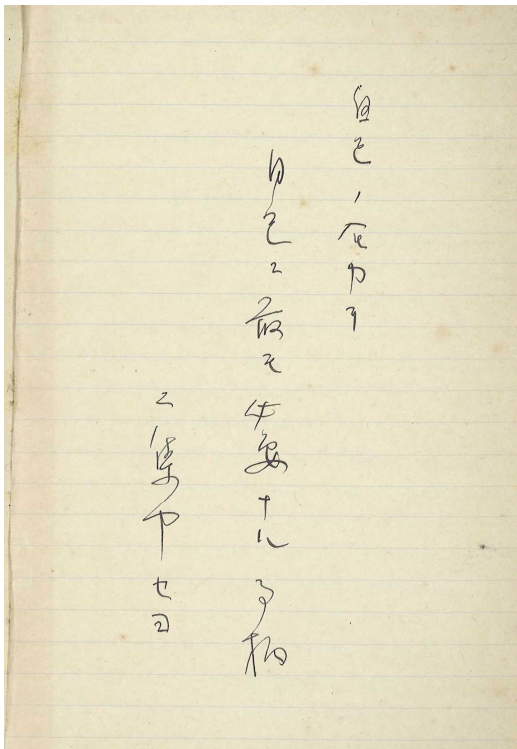 自己ノ全力ヲ
自己ニ最モ必要ナル事柄
ニ集中セヨ